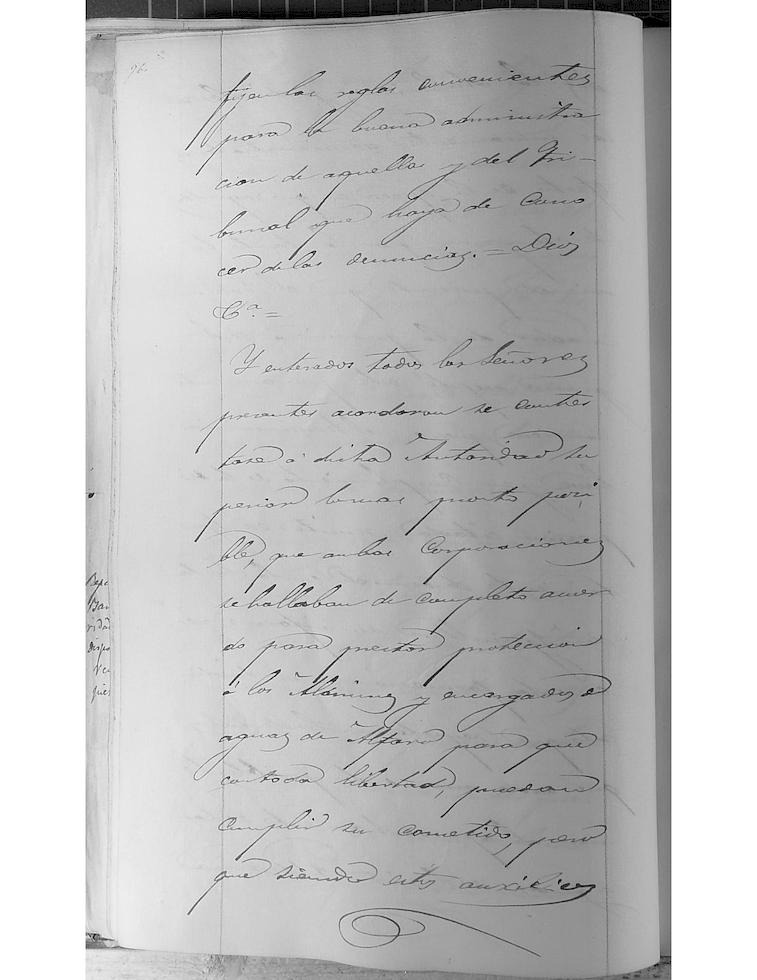 96.
fijen las reglas convenientes
para la buena administra
cion de aquellas y del Tri-
bunal que haya de Cono
cer de las denuncias. = Dios
&ª. =
Y enterados todos los Señores
presentes acordaron se contes
tase á dicha Autoridad su
perior lo mas pronto posi
ble, que ambas Corporaciones
se hallaban de completo acuer
do para prestar proteccion
á los Alamines y encargados de
aguas de Alfaro para que
con toda libertad, puedan
cumplir su cometido, pero
que siendo estos auxilios